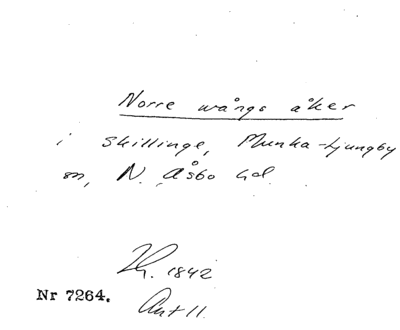 Norre wångs åker
i Skillinge, Munka-Ljungby
sn, N. Åsbo hd.
1842
Nr 7264.
Akt 11.